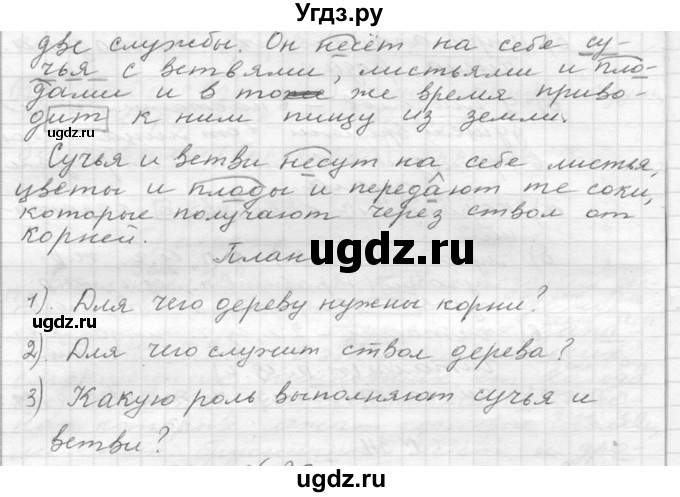 Угдз.ру
две службы. Он несёт на себе су-
чья с ветвями, листьями и пло-
дами и в то же время приво-
дит к ним пищу из земли.
угдз.ру
Сучья и ветви несут на себе листья,
цветы и плоды и передают те соки,
которые получают через ствол от
корней.
План
угдз.ру
1). Для чего дереву нужны корни?
угдз.ру
2). Для чего служит ствол дерева?
3) Какую роль выполняют сучья и
ветви?